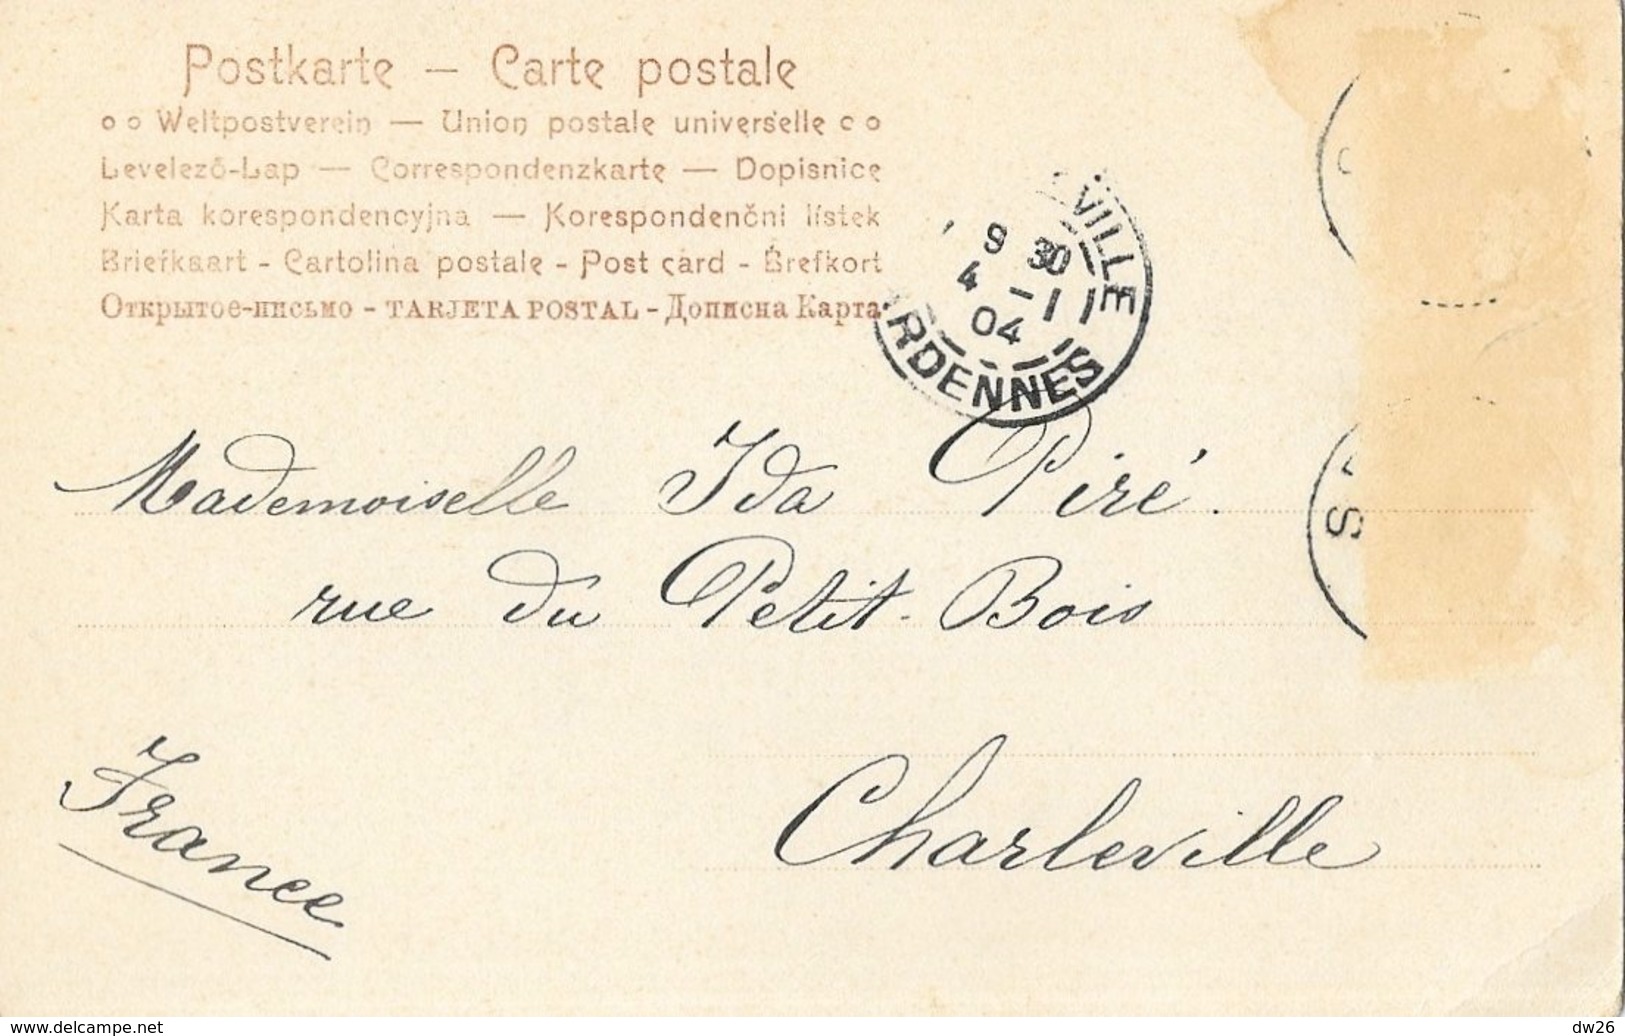 Postkarte – Carte postale
o o Weltpostverein — Union postale universelle o o
Levelező-Lap — Correspondenzkarte — Dopisnice
Karta korespondencyjna — Korespondenční lístek
Briefkaart - Cartolina postale - Post card - Brefkort
Открытое-письмо - TARJETA POSTAL - Дописна Карта
VILLE
9 30
4 - 1
04
RDENNES
S
Mademoiselle Ida Piré.
rue du Petit-Bois
Charleville
France
www.delcampe.net
dw26